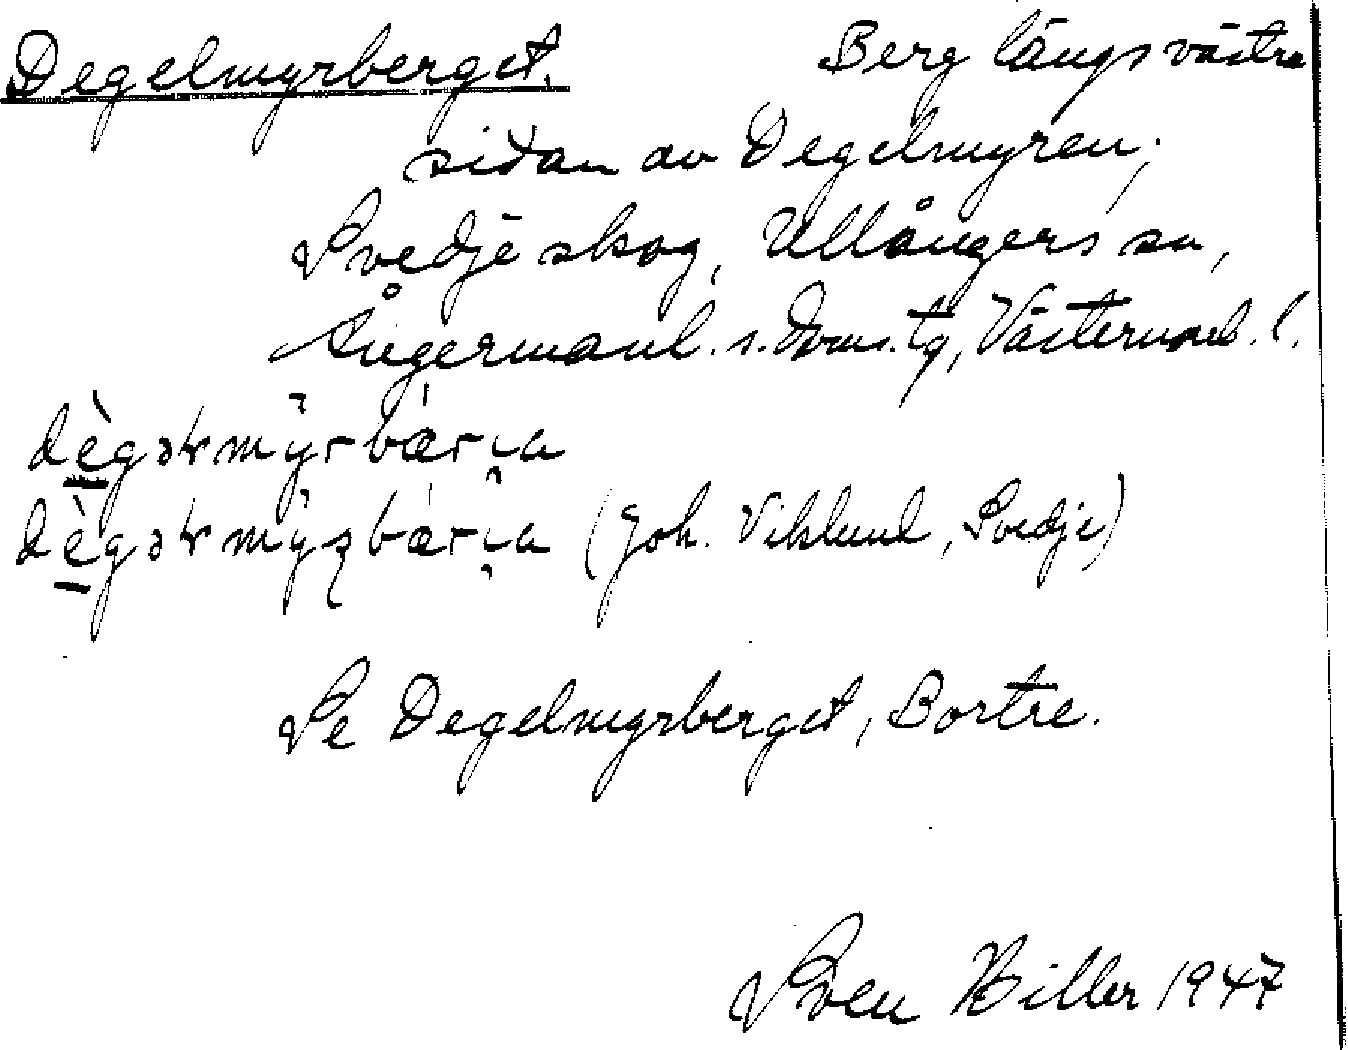 Degelmyrberget. Berg längs västra
sidan av Degelmyren;
Svedje skog, Ullångers sn,
Ångermanl. s. doms. tg, Västernorrl. l.
dègəɫmy̆rbærɩa
dègəɫmy̆ʂbærɩa (Joh. Viklund, Svedje)
Se Degelmyrberget, Bortre.
Sven Hiller 1947